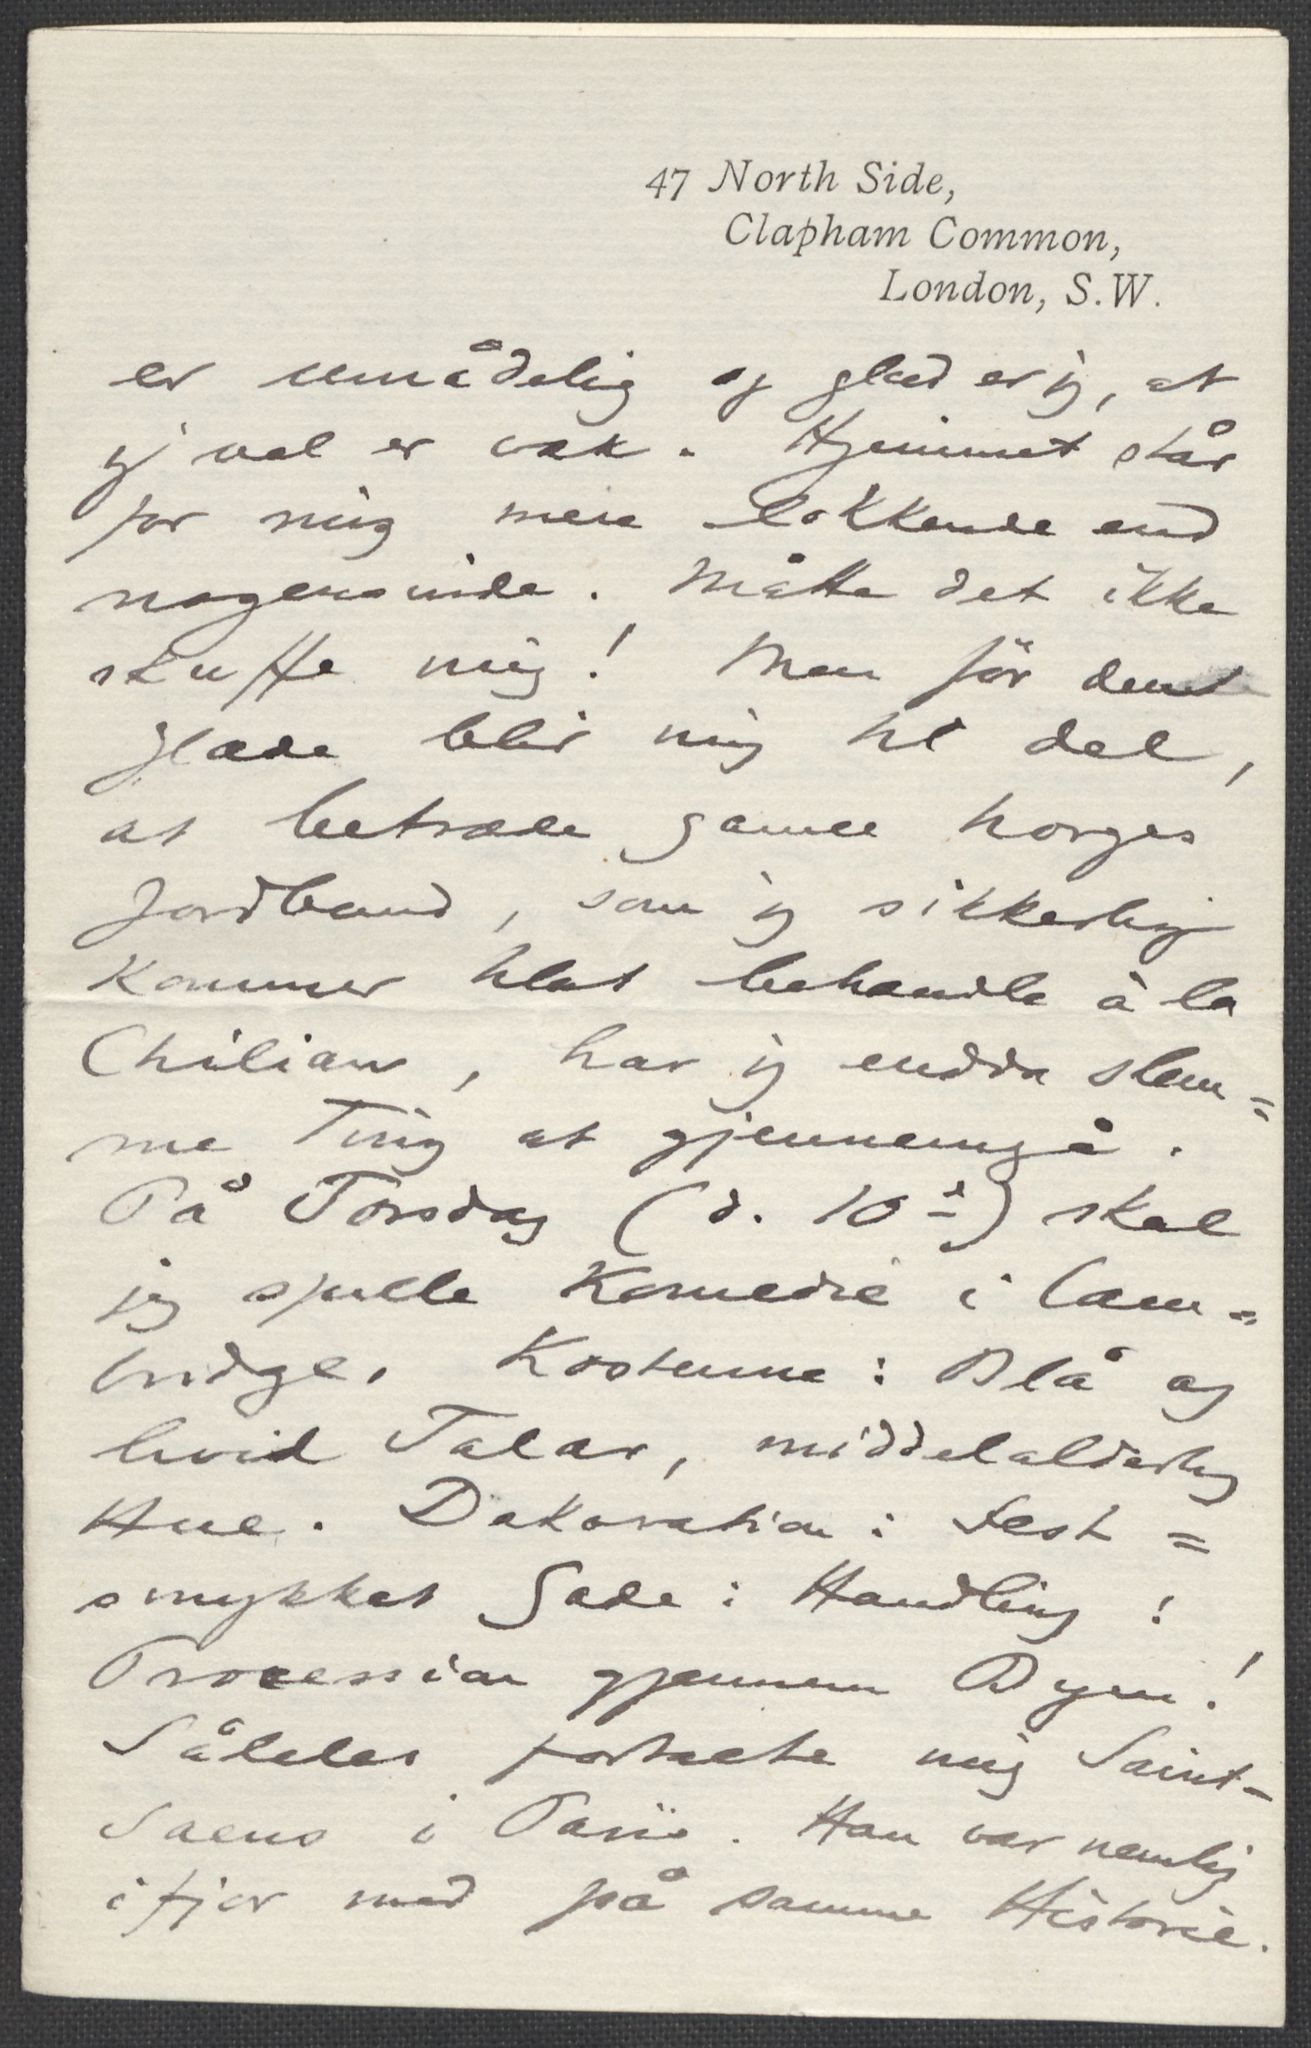 47 North Side,
Clapham Common,
London, S.W.
er umådelig og glad er jeg, at
jeg vel er væk. Hjemmet står
for mig mere lokkende end
nogensinde. Måtte det ikke
skuffe mig! Men før den
Glæde blir mig til del,
at betræde gamle Norges
Jordbund, som jeg sikkerlig
kommer til at behandle à la
Chilian, har jeg endda slem=
me Ting at gjennemgå.
På Torsdag (d. 10d) skal
jeg spille Komedie i Cam=
bridge. Kostume: Blå og
hvid Talar, middelalderlig
Hue. Dekoration: Fest=
smykket Gade: Handling:
Procession gjennem Byen!
Således fortalte mig Saint-
Saens i Paris. Han var nemlig
ifjor med på samme Historie.